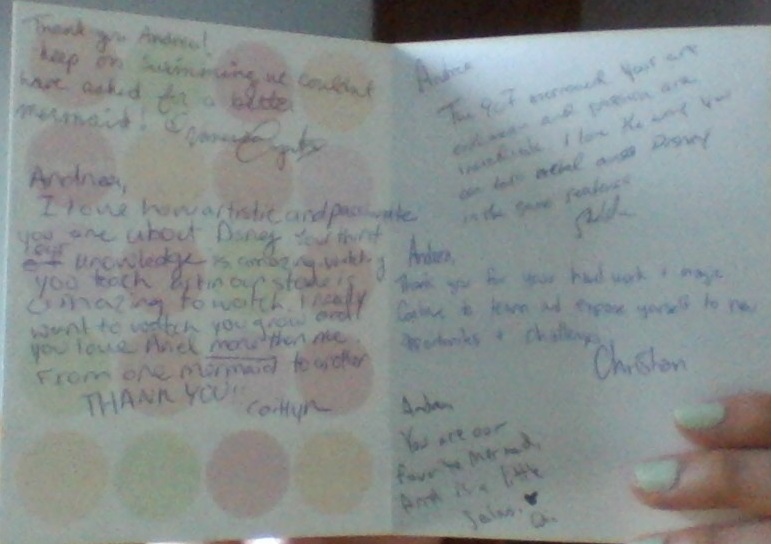 Thank you Andrea!
Keep on Swimming we couldnt
have asked for a better
mermaid!
Andrea,
I love how artistic and passionate
you are about Disney. You think
your knowledge is amazing. watching
you teach art in our store is
amazing to watch. I really
want to watch you grow and
you love Ariel more than me.
From one mermaid to another
THANK YOU!!
Caitlyn
Andrea
The mermaid Your art
and passion are
I love the way you
can Disney
in the same sentence
Andrea,
Thank you for your hard work + magic
Continue to learn and expose yourself to new
opportunities + challenges
Christian
Andrea
You are our
favorite mermaid,
Ariel is a little
jealous.